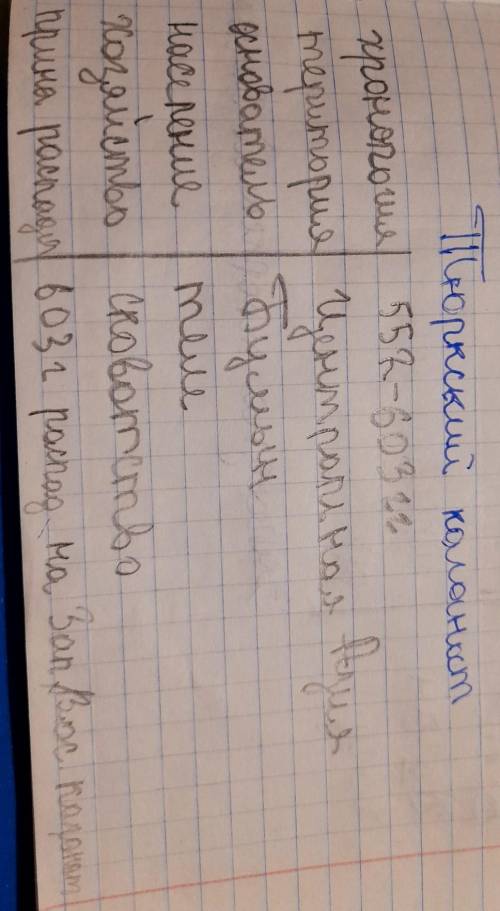 Тюркский каганат
хронология 552-603 гг
територия Центральная Азия
основатель Бумын
население теле
хозяйство скотватство
прина распада в 603 г распад. на Зап, Вос каганат